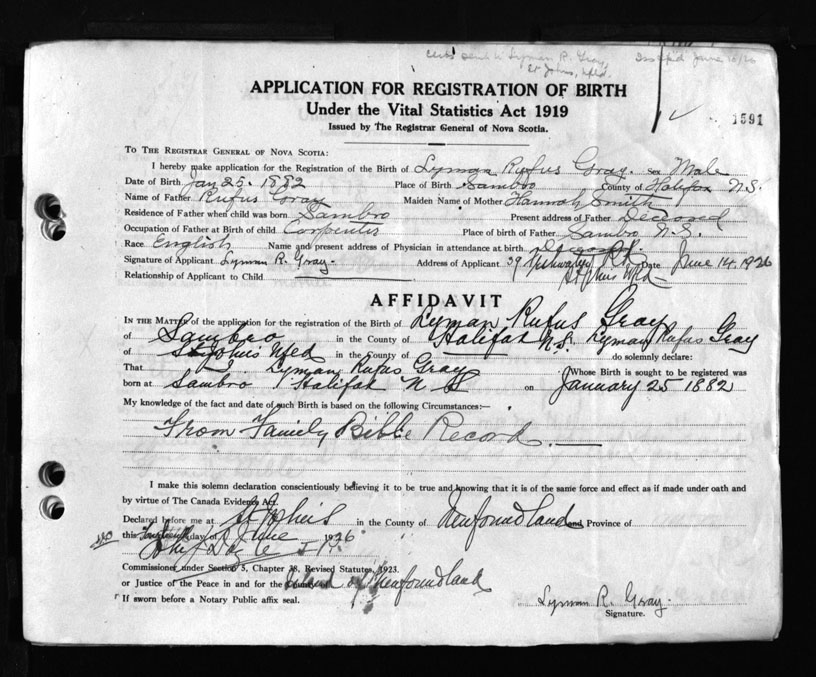 Certs sent to Lyman R. Gray, St Johns, Nfld.
June 10/26
APPLICATION FOR REGISTRATION OF BIRTH
Under the Vital Statistics Act 1919
Issued by The Registrar General of Nova Scotia.
1591
TO THE REGISTRAR GENERAL OF NOVA SCOTIA:
I hereby make application for the Registration of the Birth of Lyman Rufus Gray. sex Male
Date of Birth Jan 25. 1882 Place of Birth Sambro County of Halifax N.S.
Name of Father Rufus Gray Maiden Name of Mother Hannah Smith
Residence of Father when child was born Sambro Present address of Father Deceased
Occupation of Father at Birth of child Carpenter Place of birth of Father Sambro N.S.
Race English Name and present address of Physician in attendance at birth
Signature of Applicant Lyman R. Gray. Address of Applicant 39 Rd St Johns Nfld Date June 14, 1926
Relationship of Applicant to Child
AFFIDAVIT
IN THE MATTER of the application for the registration of the Birth of Lyman Rufus Gray
of Sambro in the County of Halifax N.S. Lyman Rufus Gray
of St Johns Nfld in the County of do solemnly declare:
That I. Lyman Rufus Gray (Whose Birth is sought to be registered was
born at Sambro Halifax N S on January 25 1882
My knowledge of the fact and date of such Birth is based on the following Circumstances:—
From Family Bible Record.
I make this solemn declaration conscientiously believing it to be true and knowing that it is of the same force and effect as if made under oath and
by virtue of The Canada Evidence Act.
Declared before me at St John's in the County of Newfoundland and Province of
this Fourteenth day of June 1926
J.P.
Commissioner under Section 5, Chapter 38, Revised Statutes, 1923.
or Justice of the Peace in and for the Island of Newfoundland
If sworn before a Notary Public affix seal.
Lyman R. Gray.
Signature.